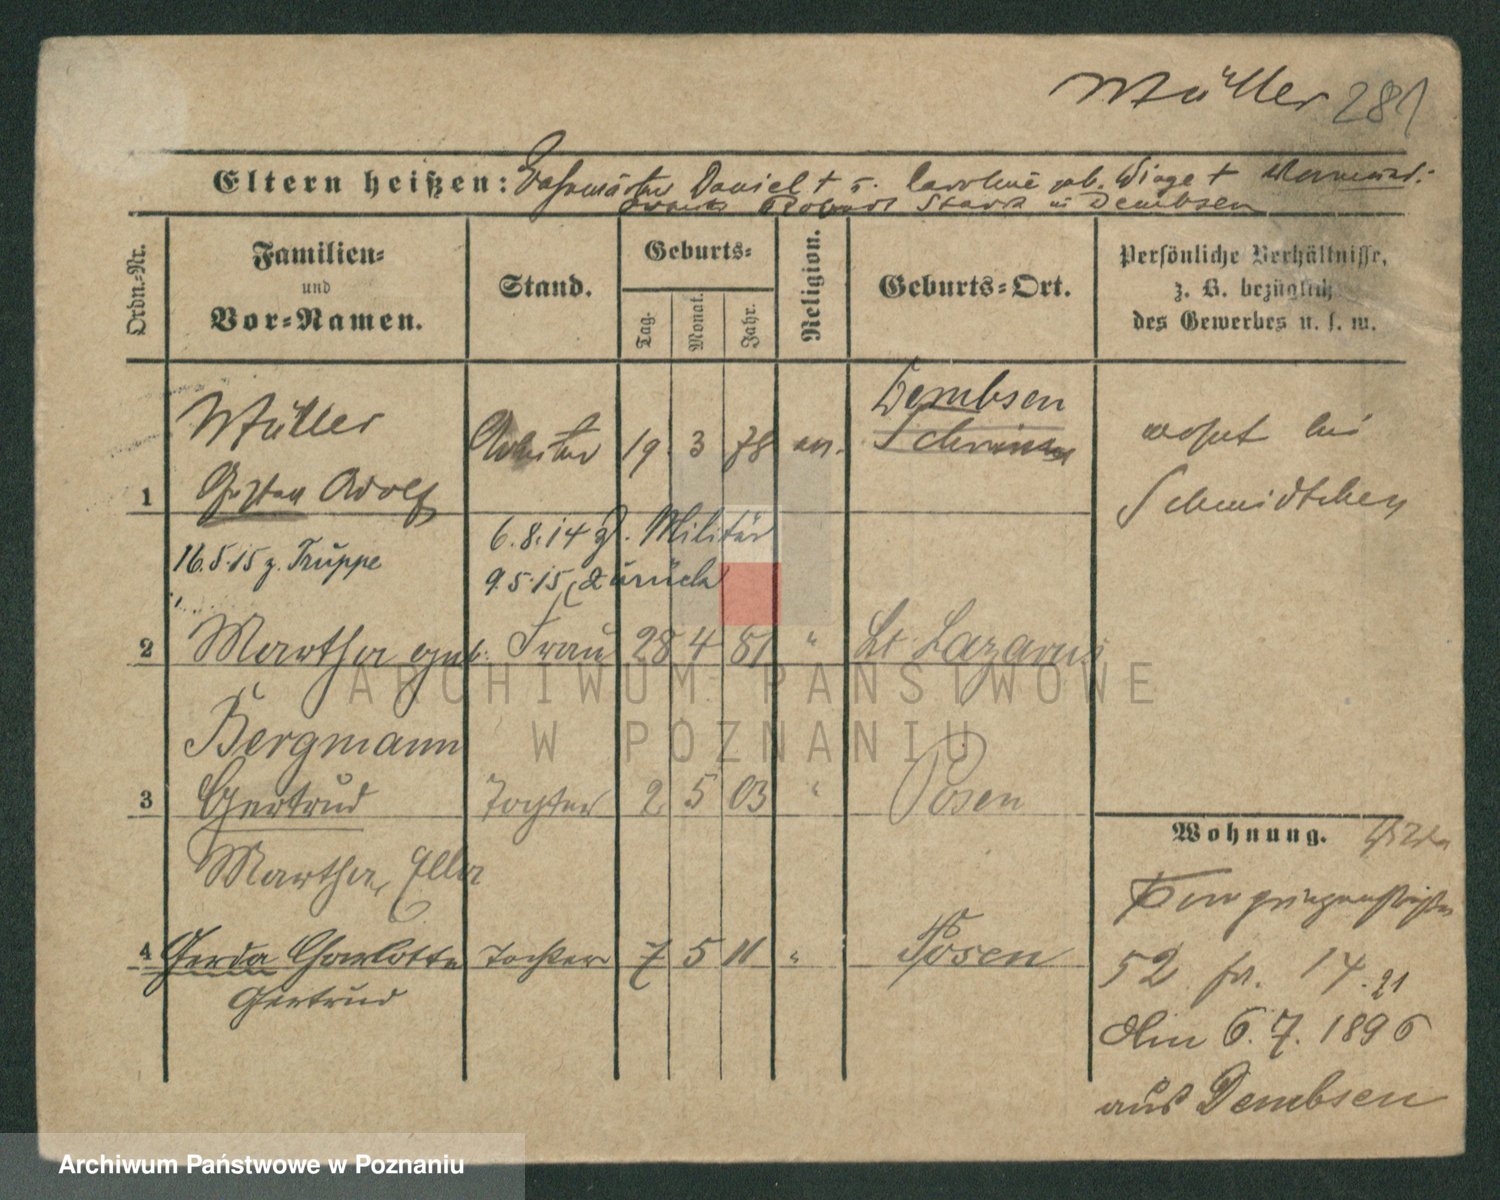 Müller 281
Eltern heißen: Daniel † u. Caroline geb. †
Robert Stark in Dembsen
Ordn.-Nr.
Familien-
und
Vor-Namen.
Stand.
Geburts-
Tag.
Monat.
Jahr.
Religion.
Geburts-Ort.
Persönliche Verhältnisse,
z. B. bezüglich
des Gewerbes u. s. w.
Müller
1 Gustav Adolf Arbeiter 19 3 78 ev. Dembsen
Schrimm
wohnt bei
Schmidtchen
6.8.14 z. Militär
16.5.15 z. Truppe
9.5.15 zurück
2 Martha geb. Frau 28 4 81 " St Lazarus
Bergmann
3 Gertrud Tochter 2 5 03 " Posen
Martha, Ella
4 Gerda Charlotte Tochter 7 5 11 " Posen
Gertrud
Wohnung.
52 fr. 14.21
Am 6.7.1896
aus Dembsen
ARCHIWUM PAŃSTWOWE
W POZNANIU
Archiwum Państwowe w Poznaniu